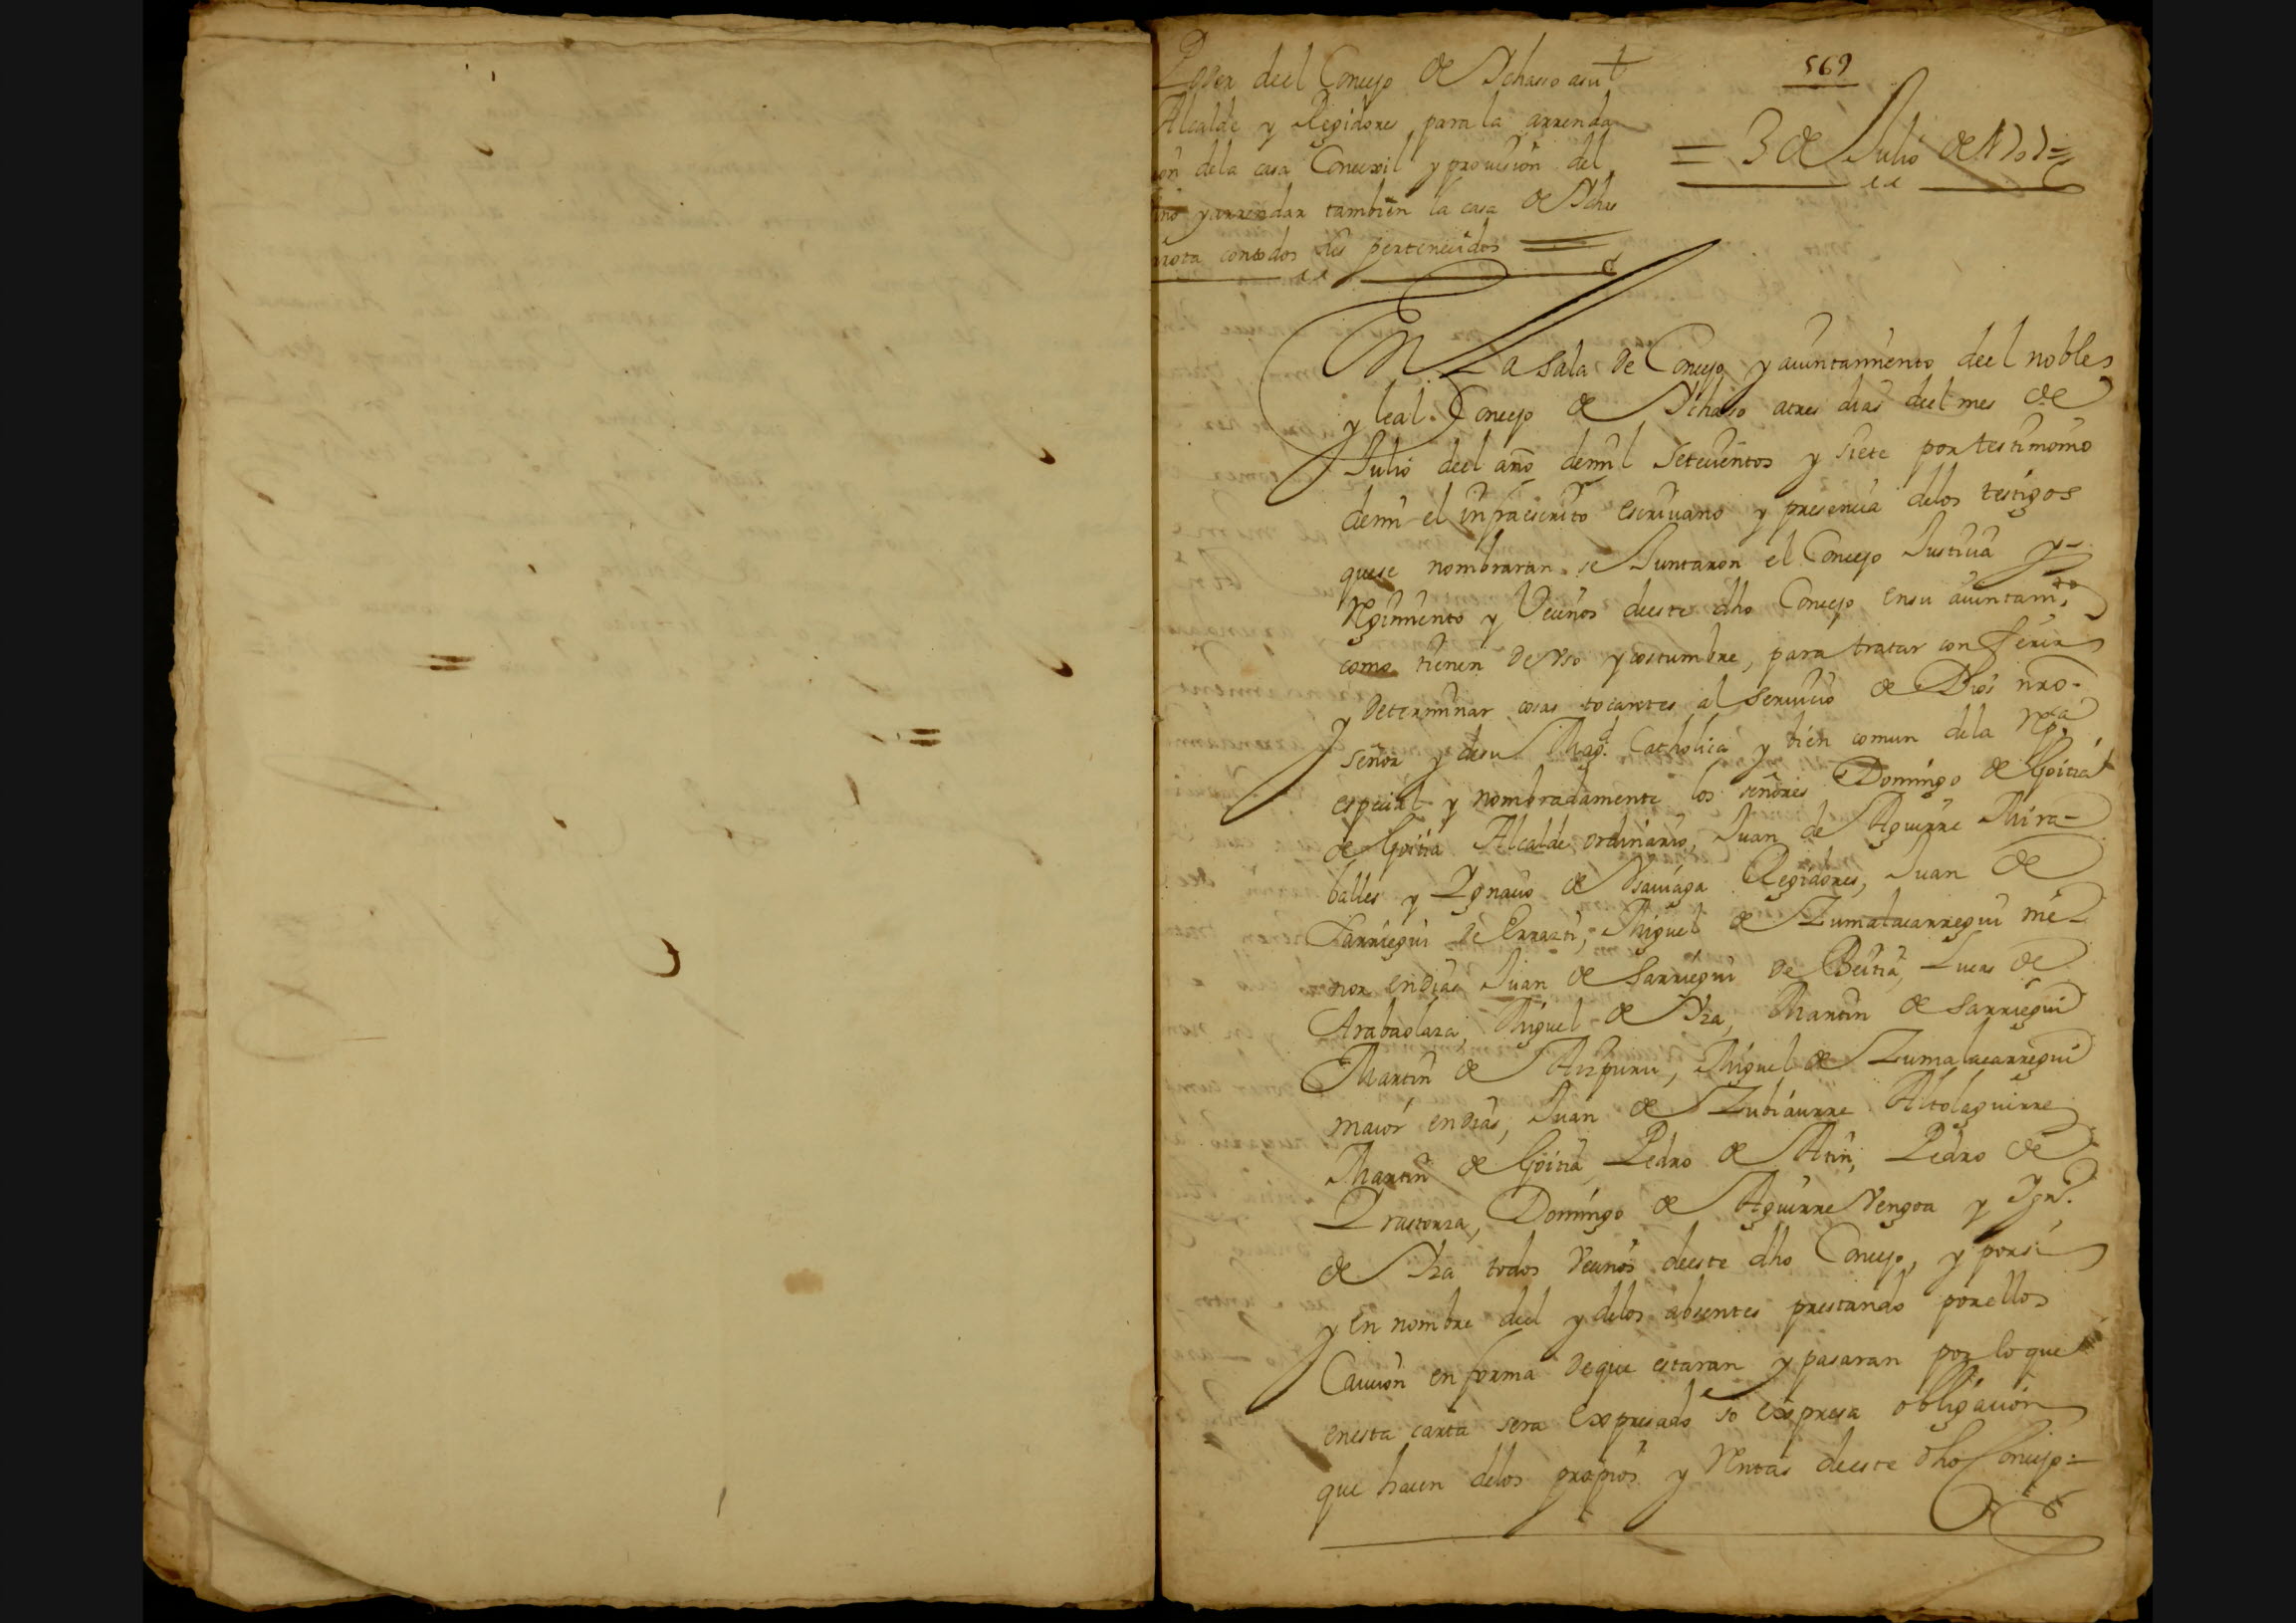 Poder deel Concejo de Ychasso asu
Alcalde y Regidores para la arrenda
on dela casa Concexil y prouision del
ino yarrendar tambien la casa de Ychas
rrota contodos sus pertenecidos =
569
= 3 de Julio de 1707 =
En La Sala de Concejo y aiuntamiento deel noble
y leal Concejo de Ychasso atres dias deel mes de
Julio deel año demil Setecientos y siete por testimonio
demi el infraescrito escriuano y presencia delos testigos
quese nombraran se Juntaron el Concejo Justicia y
Regimiento y Vecinos deeste dho Concejo ensu aiuntamto
como tienen de Vso ycostumbre, para tratar conferir
y determinar cosas tocantes al Seruicio de Dios nro
señor y desu Magd. Catholica y bien comun dela Rpca
especial y nombradamente los señores Domingo de Goitia
de Goitia Alcalde ordinario, Juan de Aguirre Mira-
balles y Ygnacio de Ysasaga Regidores, Juan de
Sarriegui de Errazti, Miguel de Zumalacarregui me-
nor endias Juan de Sarriegui de Beitia, Lucas de
Arabaolaza, Miguel de Yza, Martin de Sarriegui
Martin de Aizpuru, Miguel de Zumalacarregui
maior endias, Juan de Zubiaurre Altolaguirre
Martin de Goitia Pedro de Atin, Pedro de
Yrastorza, Domingo de Aguirre Vengoa y Ygno.
de Yza todos Vecinos deeste dho Concejo, y porsi
y En nombre deel y delos absentes prestando porellos
Caucion enforma deque estaran ypasaran por loque
enesta carta sera Expresado so Expresa obligacion
que hacen delos propios y Rentas deeste dho Concejo =